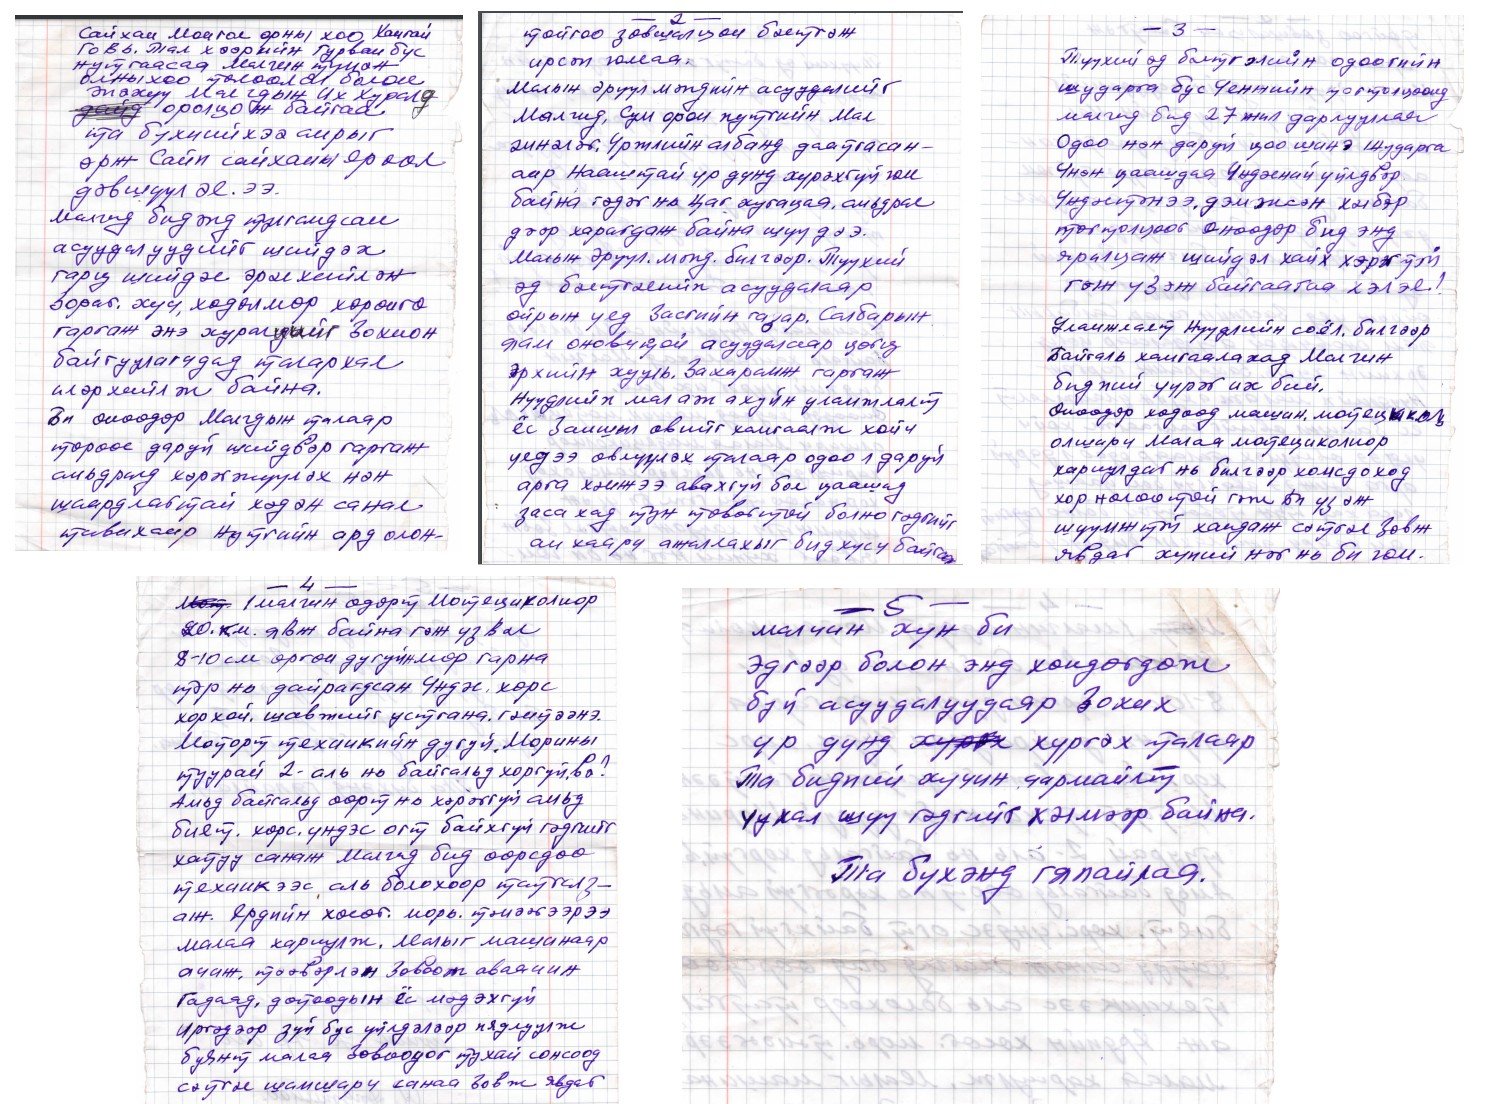 Сайхан Монгол орны хоо Хангай
Говь. Тал хээрийн Гурван бүс
нутгаасаа Малчин түмэн
олныхоо төлөөлөл болон
энэхүү Малчдын Их Хуралд
оролцож байгаа
та бүхнийхээ амрыг
эрж Сайн сайханы ерөөл
дэвшүүлэе. ээ.
Малчид бидэнд тулгамдсан
асуудлуудыг шийдэх
гарц шийдэл эрэлхийлэн
Зориг. хүч, хөдөлмөр хөрөнгө
гаргаж энэ хурал Зохион
байгуулагчдад талархал
илэрхийлж байна.
Би өнөөдөр Малчдын талаар
төрөөс даруй шийдвэр гаргаж
амьдралд хэрэгжүүлэх нэн
шаардлагатай хэдэн санал
тавихаар нутгийн ард олон-
— 2 —
тойгоо зөвшилцөн бэлтгэж
ирсэн юмаа.
Малын эрүүл мэндийн асуудлыг
Малчид, Сум орон нутгийн Мал
эмнэлэг, Үржлийн албанд даатгасан-
аар Нааштай үр дүнд хүрэхгүй юм
байна гэдэг нь Цаг хугацаа, амьдрал
дээр харагдаж байна шүү дээ.
Малын Эрүүл. мэнд. бэлчээр. Түүхий
эд бэлтгэлийн асуудлаар
ойрын үед Засгийн газар. Салбарын
яам оновчтой асуудлаар цогц
эрхийн хууль. Захирамж гаргаж
Нүүдлийн мал аж ахуйн уламжлалт
ёс Заншил өвийг хамгаалж хойч
үедээ өвлүүлэх талаар одоо л даруй
арга хэмжээ авахгүй бол цаашид
засахад түн төвөгтэй болно гэдгийг
анхаарч ажиллахыг бид хүсч байгаа
— 3 —
Түүхий эд бэлтгэлийн одоогийн
шударга бус Ченжийн тогтолцоонд
малчид бид 27 жил дарлууллаа
Одоо нэн даруй цоо шинэ шударга
Үнэн цаашдаа Үндэсний үйлдвэр.
Үндэстэнээ, дэмжсэн хэлбэр
тогтолцоог өнөөдөр бид энд
ярилцаж шийдэл хайх хэрэгтэй
гэж үзэж байгаагаа хэлье!
Уламжлалт Нүүдлийн соёл. бэлчээр
Байгаль хамгаалахад Малчин
бидний үүрэг их бий.
Өнөөдөр хөдөөд машин, мотецикль
олширч Малаа мотециклиор
хариулдаг нь бэлчээр хомсдоход
хор нөлөөтэй гэж Би үзэж
шүүмжтэй хандаж сэтгэл Зовж
явдаг хүний нэг нь би юм.
— 4 —
1 малчин өдөрт Мотециклиор
20. км. явж байна гэж үзвэл
8-10 см өргөн дугуйн мөр гарна
тэр нь дайрагдсан Үндэс. хөрс
хорхой. шавжийг устгана. гэмтээнэ.
Моторт техникийн дугуй, Морины
туурай 2- аль нь байгальд хоргүй, вэ?
Амьд байгальд огт нь хэрэггүй амьд
биет. хөрс. үндэс огт байхгүй гэдгийг
хатуу санаж Малчид бид өөрсдөө
техникээс аль болохоор татгалз-
аж. Ердийн хөсөг. морь. тэмээгээрээ
малаа хариулж, Малыг машинаар
ачиж, тээвэрлэн Зовоож аваачин
Гадаад, дотоодын Ёс мэдэхгүй
Иргэдээр зүй бус үйлдэлээр нядлуулж
буянт малаа Зовоодог тухай сонсоод
сэтгэл шимширч санаа Зовж явдаг
— 5 —
малчин хүн би
Эдгээр болон энд хөндөгдөж
буй асуудлуудаар Зохих
үр дүнд хүргэх талаар
Та бидний хүчин чармайлт
чухал шүү гэдгийг хэлмээр байна.
Та бүхэнд гялайлаа.